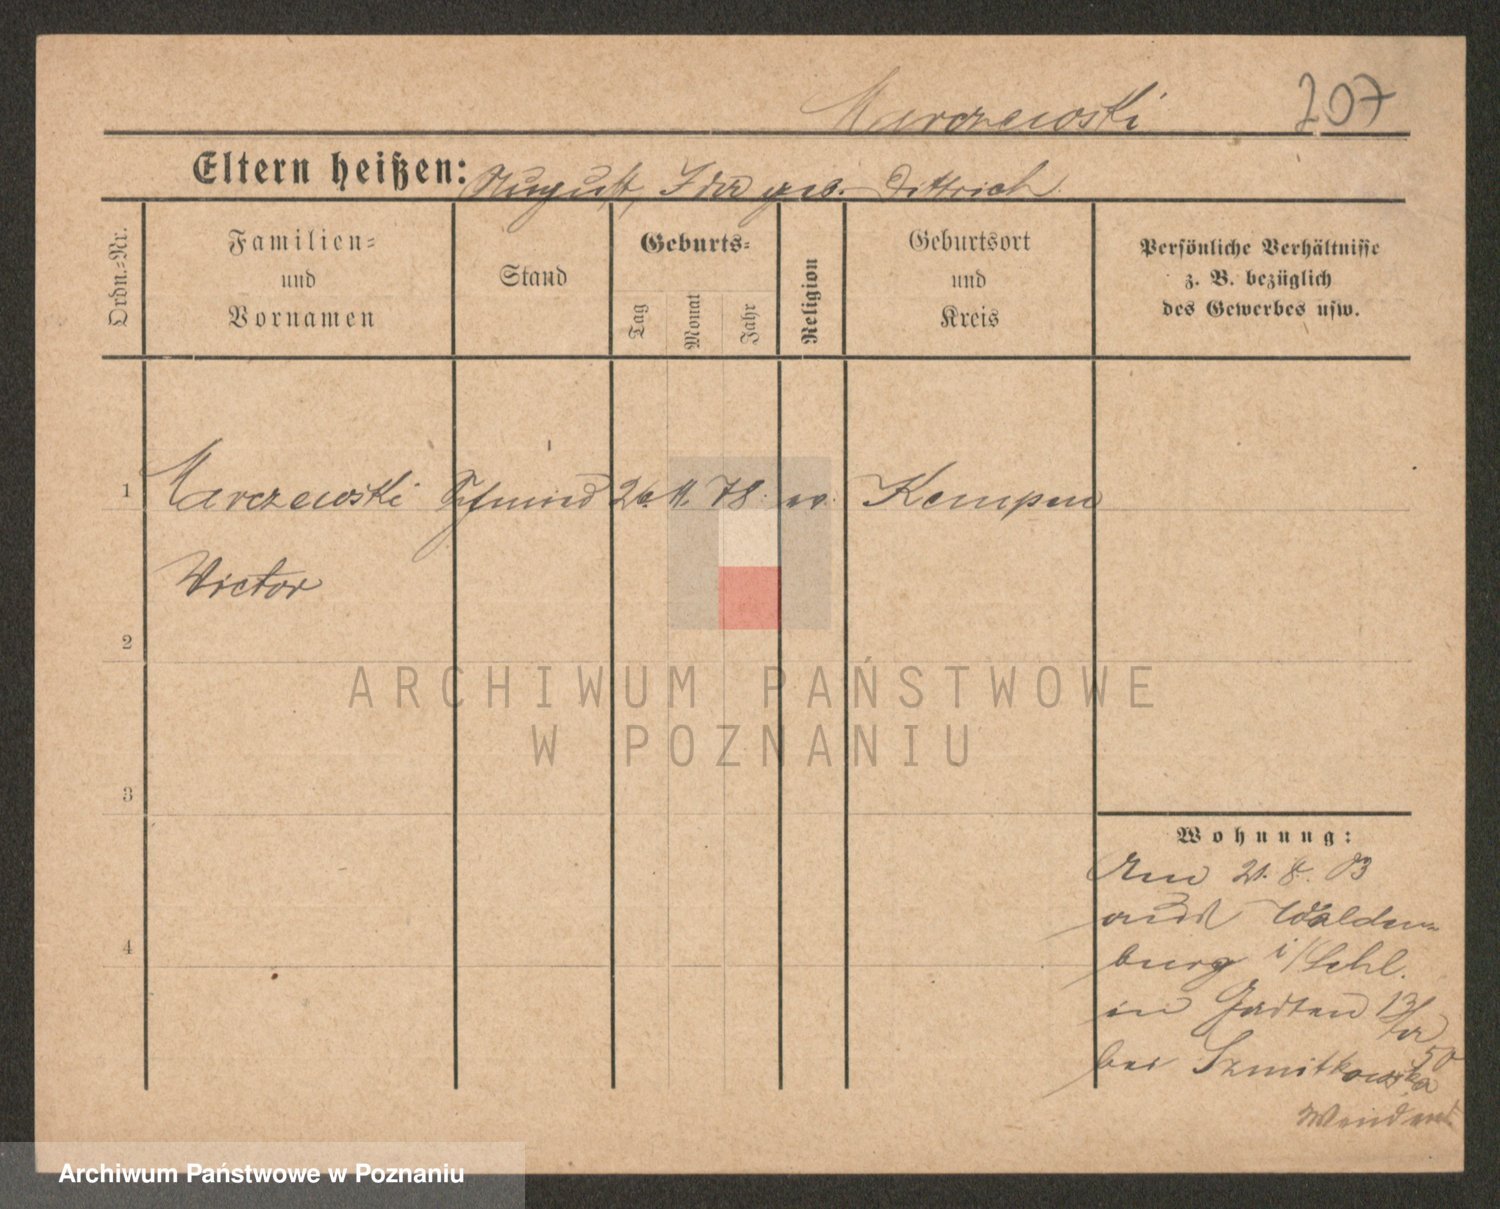 Marczewski 207
Eltern heißen: August, Ida geb. Dittrich
Ordn.=Nr.
Familien=
und
Vornamen
Stand
Geburts=
Tag
Monat
Jahr
Religion
Geburtsort
und
Kreis
Persönliche Verhältnisse
z. B. bezüglich
des Gewerbes usw.
1 Marczewski Schmied 26. 11. 78. ev. Kempen
Victor
2
3
4
Wohnung:
Am 21. 8. 03
aus Walden=
burg i/Schl.
in Garten 13/
bei
ARCHIWUM PAŃSTWOWE
W POZNANIU
Archiwum Państwowe w Poznaniu